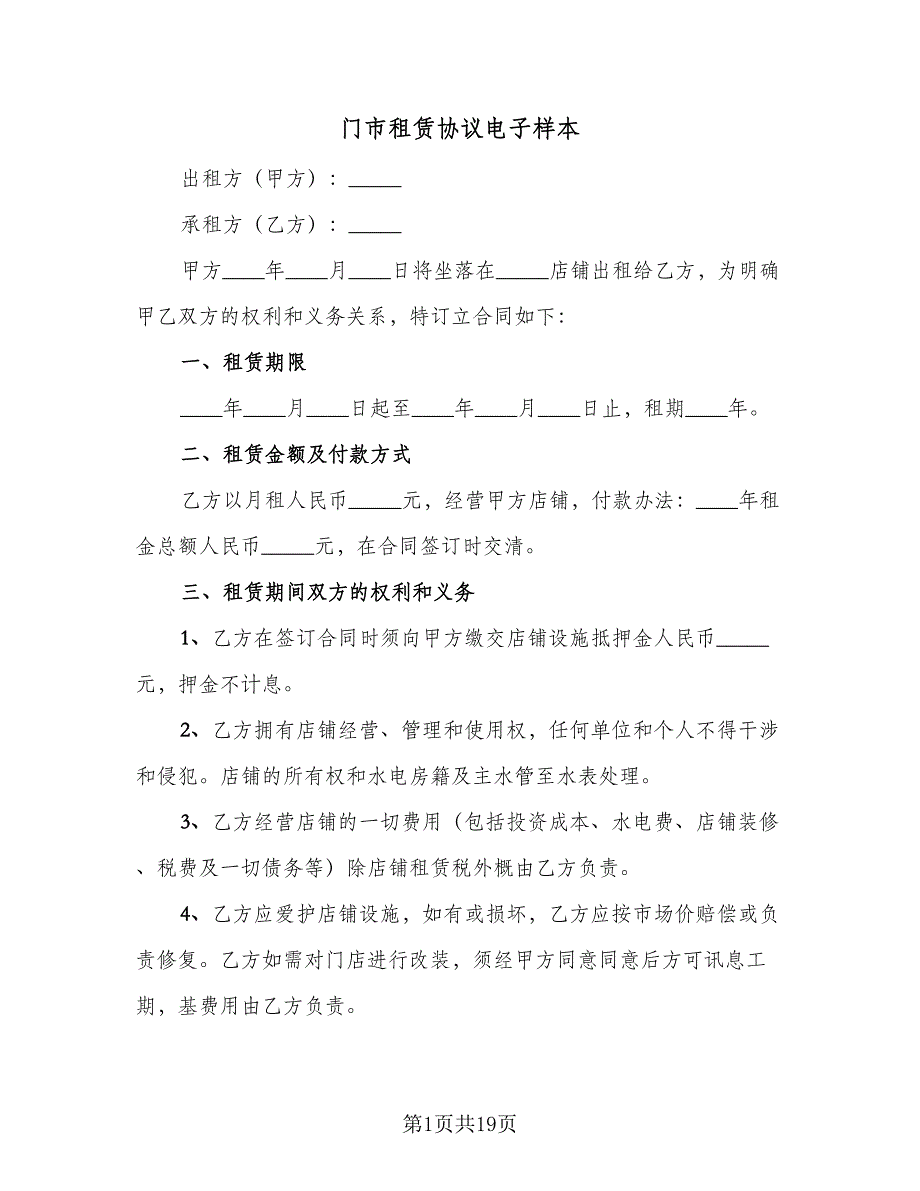 门市租赁协议电子样本
出租方（甲方）：_____
承租方（乙方）：_____
甲方____年____月____日将坐落在_____店铺出租给乙方，为明确
甲乙双方的权利和义务关系，特订立合同如下：
一、租赁期限
____年____月____日起至____年____月____日止，租期____年。
二、租赁金额及付款方式
乙方以月租人民币_____元，经营甲方店铺，付款办法：____年租
金总额人民币_____元，在合同签订时交清。
三、租赁期间双方的权利和义务
1、乙方在签订合同时须向甲方缴交店铺设施抵押金人民币_____
元，押金不计息。
2、乙方拥有店铺经营、管理和使用权，任何单位和个人不得干涉
和侵犯。店铺的所有权和水电房籍及主水管至水表处理。
3、乙方经营店铺的一切费用（包括投资成本、水电费、店铺装修
、税费及一切债务等）除店铺租赁税外概由乙方负责。
4、乙方应爱护店铺设施，如有或损坏，乙方应按市场价赔偿或负
责修复。乙方如需对门店进行改装，须经甲方同意同意后方可讯息工
期，基费用由乙方负责。
第1页共19页